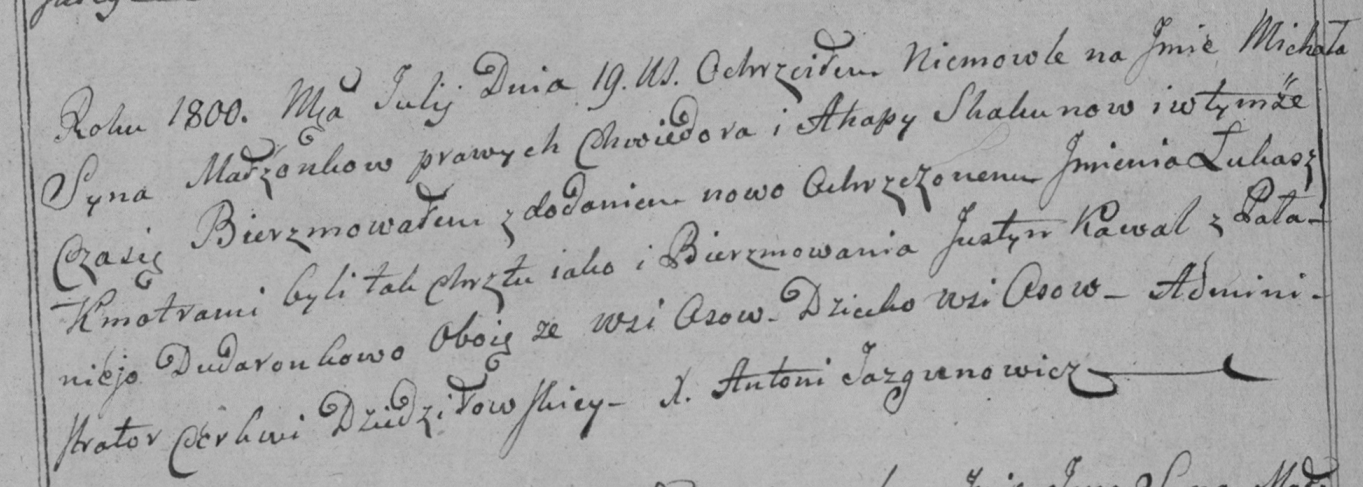 Roku 1800. Mςa Julij Dnia 19. Us. Ochrzciłem Niemowle na Jmie Michała
Syna Małżonkow prawych Chwiedora i Ahapy Skakunow i w tymże
Czasię Bierzmowałem z dodaniem nowo Ochrzczonemu Jmienia Łukasz
Kmotrami byli tak chrztu iako i Bierzmowania Justyn Kawal z Pała-
niejo Dudaronkowo Oboię ze wsi Osow - Dziecko wsi Osow - Admini-
strator Cerkwi Dziedziłowskiey - X. Antoni Jazgunowicz